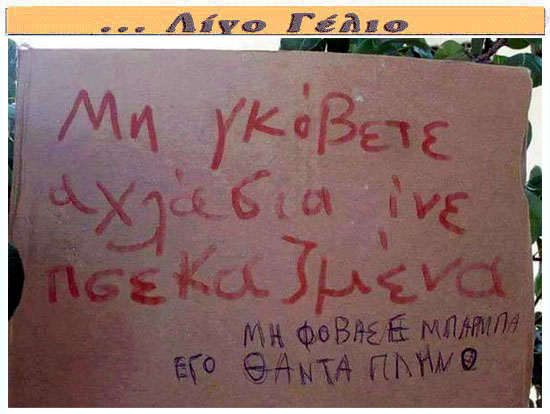 ... Λίγο Γέλιο
Μη γκόβετε
αχλάδια ίνε
πσεκαζμένα
ΜΗ ΦΟΒΑΣΕ ΜΠΑΡΜΠΑ
ΕΓΟ ΘΑΝΤΑ ΠΛΗΝΟ